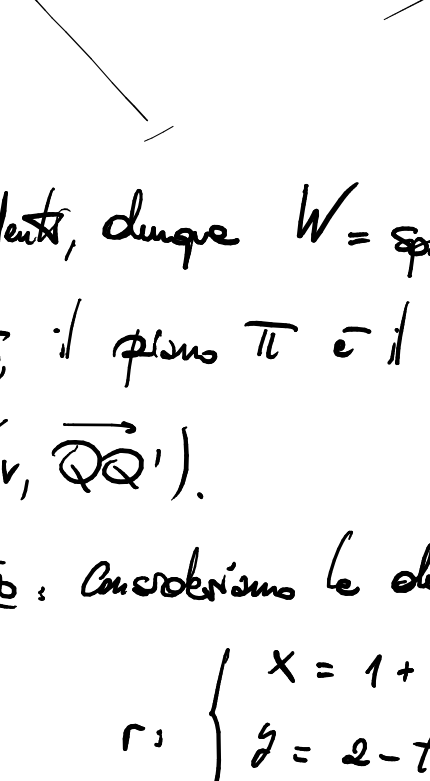 denti, dunque W = spa
il piano π è il
v, QQ').
o: Consideriamo le d
r: { x = 1 +
y = 2 - t